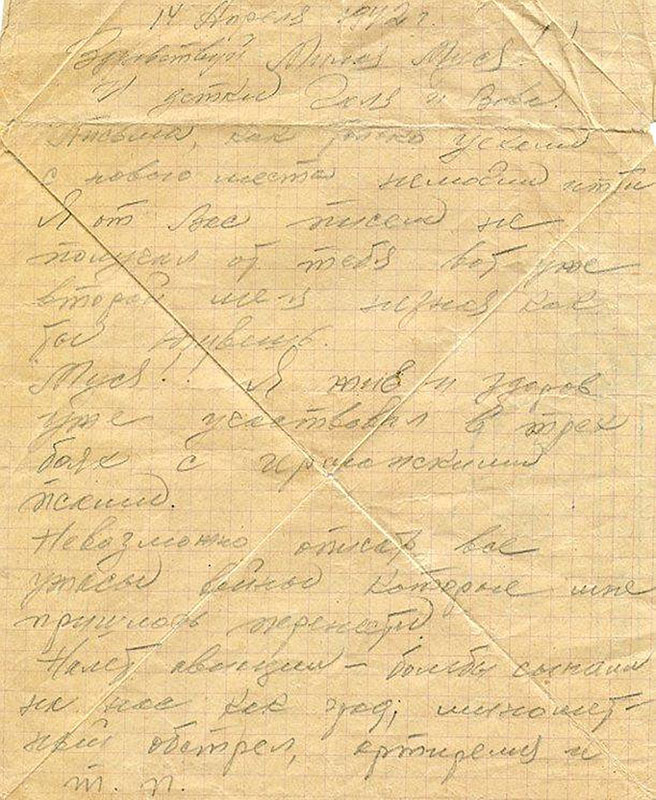 14 Апреля 1942 г.
Здравствуй Милая Муся!
И детки Галя и Вова.
Письма, как только уехали
с нового места немогли итти
Я от Вас писем не
получал от тебя вот уже
второй месяц незная как
ты живешь.
Муся!! Я жив и здоров
уже участвовал в трех
боях с
псками.
Невозможно описать все
ужасы войны которые мне
пришлось перенести.
Налет авиации – бомбы сыпали
на нас как град, миномет-
ный обстрел, артиремия и
т. п.